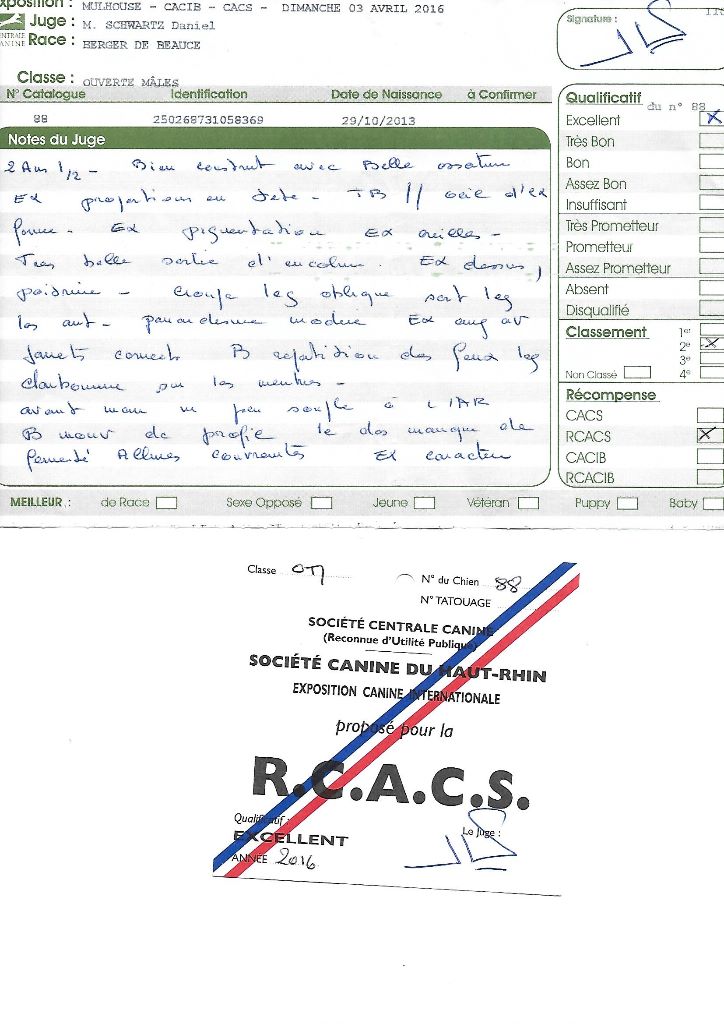 xposition : MULHOUSE - CACIB - CACS - DIMANCHE 03 AVRIL 2016
Juge : M. SCHWARTZ Daniel
ENTRALE
ANINE Race : BERGER DE BEAUCE
Classe : OUVERTE MÂLES
Signature :
N° Catalogue Identification Date de Naissance à Confirmer
88 250268731058369 29/10/2013
Notes du Juge
2 Ans 1/2 - Bien construit avec Belle ossature
Ex proportions en tete - TB // oeil d'ex
forme - Ex pigmentation Ex oreilles -
Tres belle sortie d'encolure. Ex dessus,
poitrine - croupe leg oblique sort leg
les ant - moderne Ex ang av
jarrets corrects B repartition des feux leg
charbonnés sur les membres -
avant main un peu souple à L'IAR
B mouv de profil le dos manque de
fermeté Allures couvrantes Ex caractère
Qualificatif du n° 88
Excellent X
Très Bon
Bon
Assez Bon
Insuffisant
Très Prometteur
Prometteur
Assez Prometteur
Absent
Disqualifié
Classement 1er
2e X
3e
Non Classé 4e
Récompense
CACS
RCACS X
CACIB
RCACIB
MEILLEUR : de Race Sexe Opposé Jeune Vétéran Puppy Baby
Classe N° du Chien 88
N° TATOUAGE
SOCIÉTÉ CENTRALE CANINE
(Reconnue d'Utilité Publique)
SOCIÉTÉ CANINE DU HAUT-RHIN
EXPOSITION CANINE INTERNATIONALE
proposé pour la
R.C.A.C.S.
Qualificatif :
EXCELLENT
Le Juge :
ANNÉE 2016